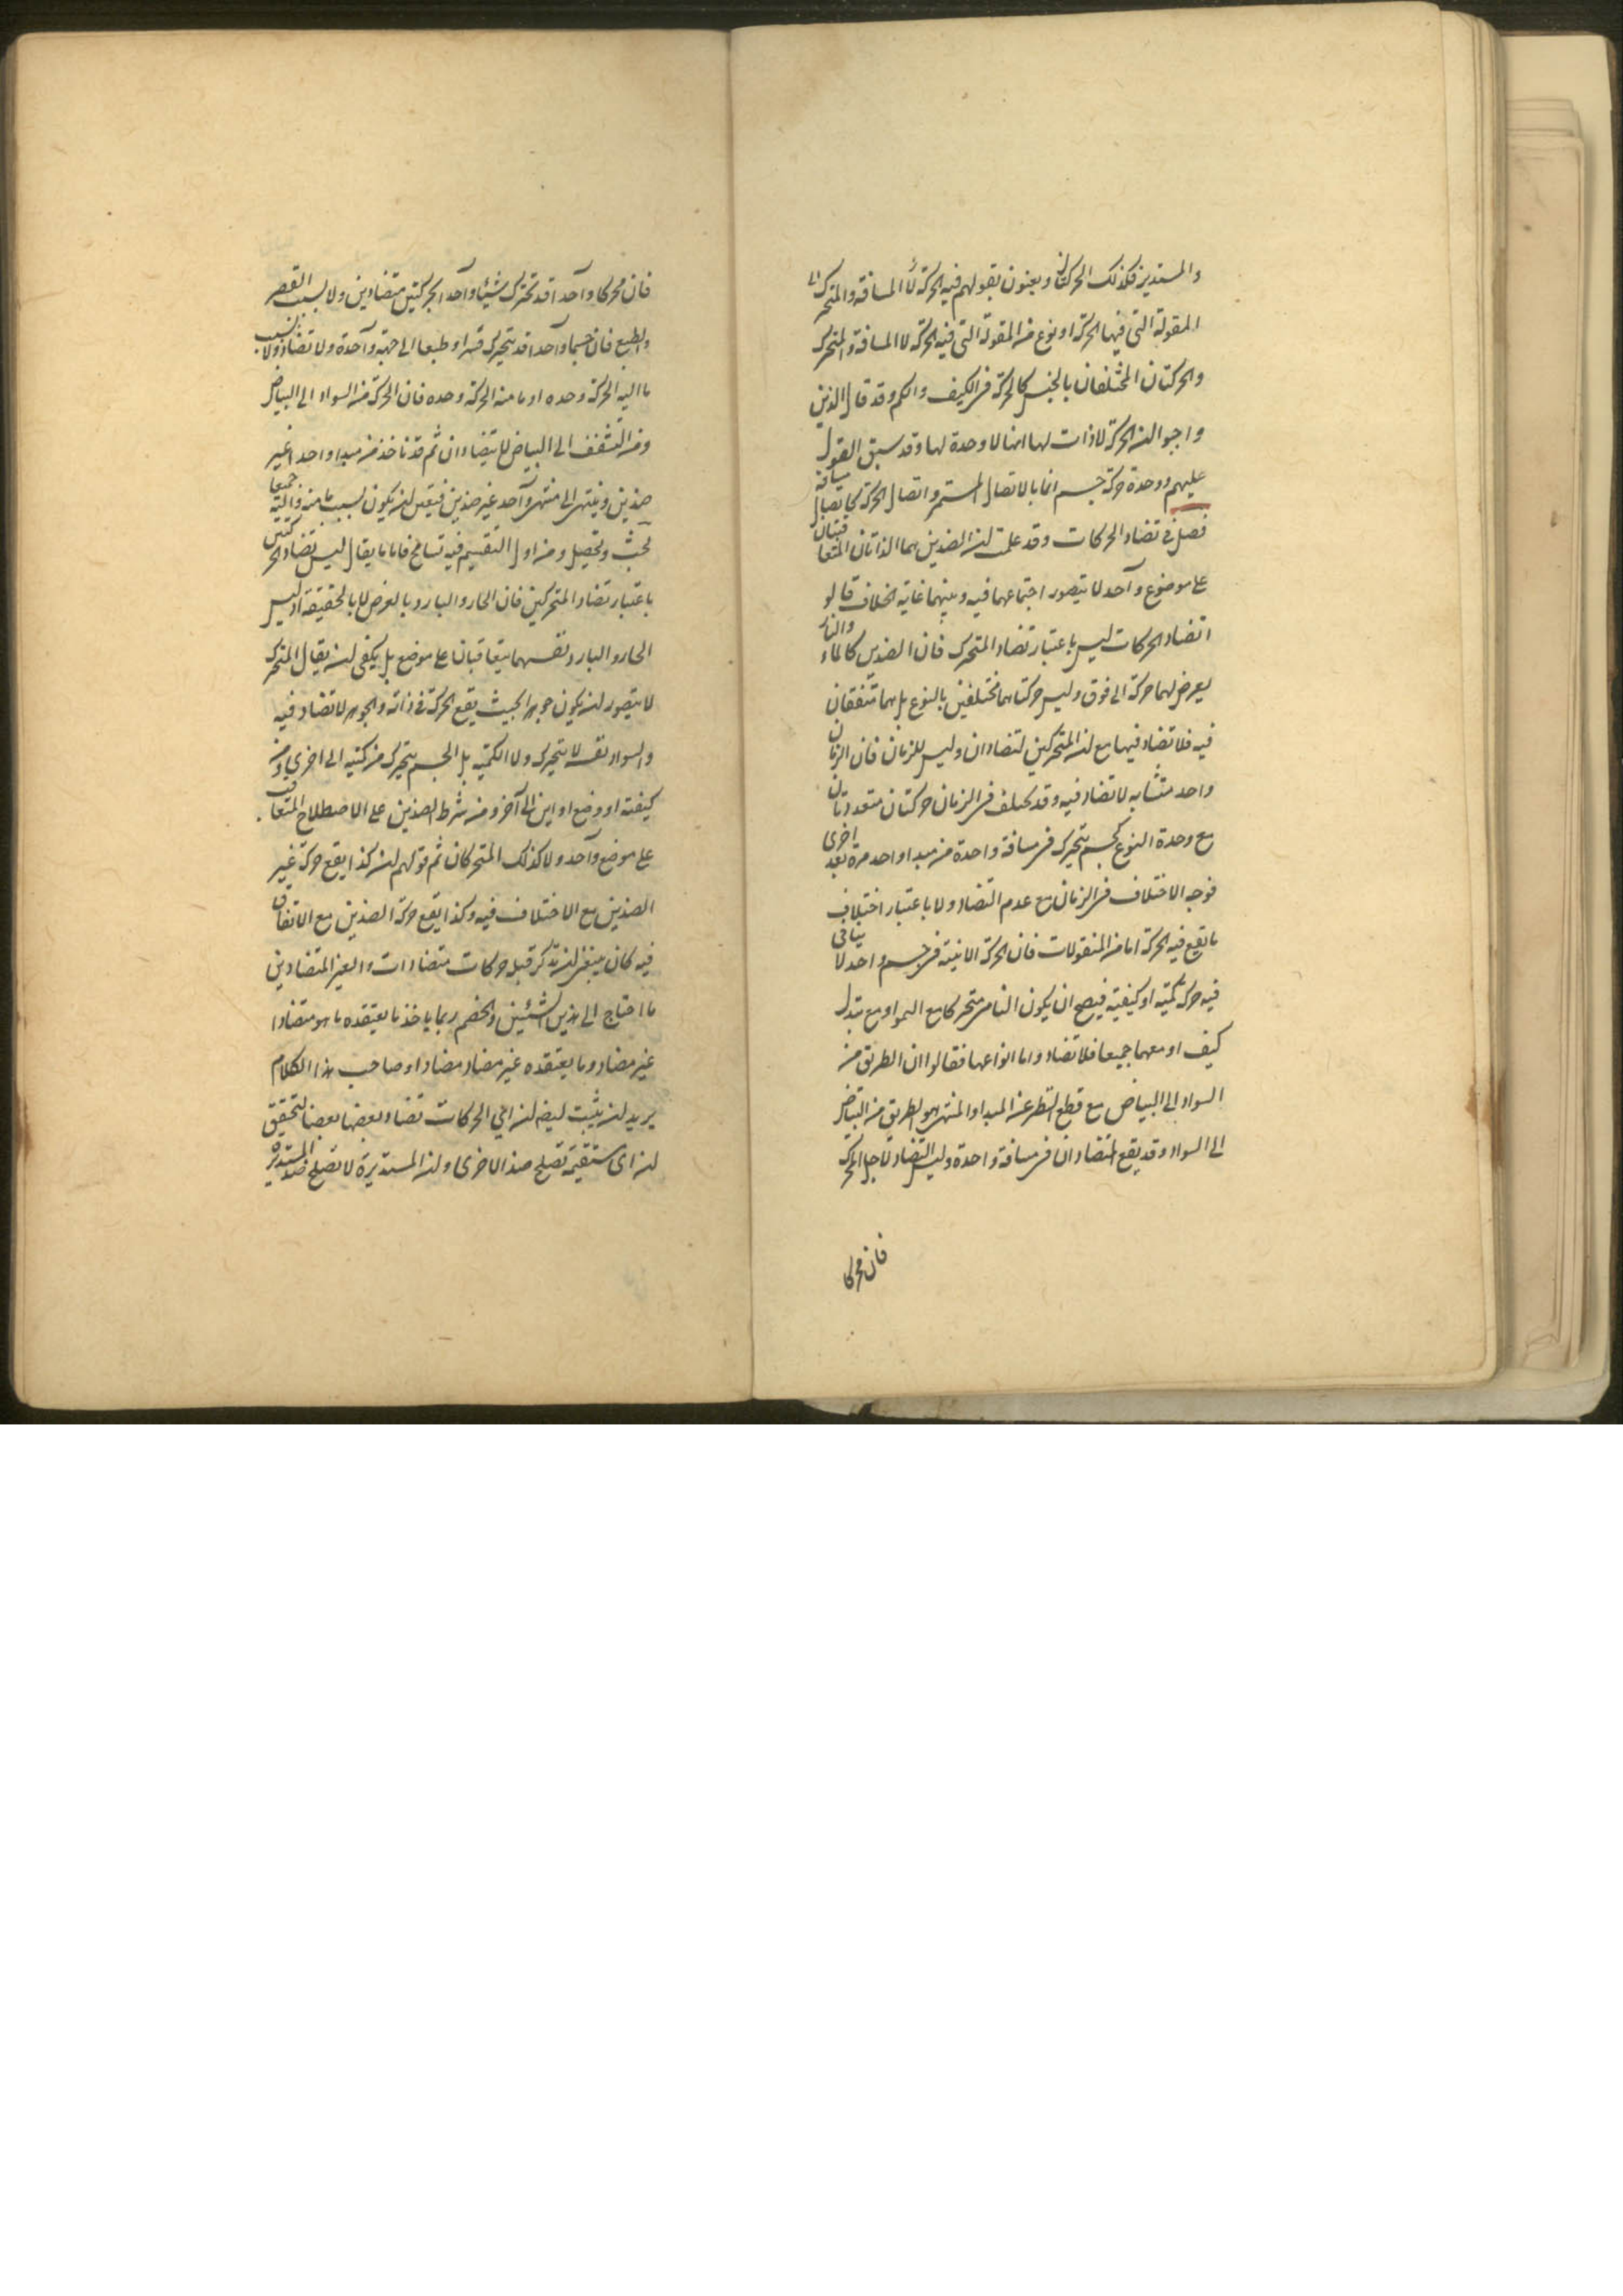 والمستدير فكذلك الحركتان ويعنون بقولهم فيه الحركة لا المسافة والمتحرك
المقولة التى فيها الحركة او نوع من المقولة التى فيه الحركة لا المسافة والمتحرك
والحركتان المختلفان بالجنس كالحركة فى الكيف والكم وقد قال الذين
واجبوا ان الحركة لا ذات لها انها لا وحدة لها وقد سبق القول
عليهم ووحدة حركة جسم انما بالاتصال المستمر واتصال الحركة باتصال مسافة
فصل فى تضاد الحركات وقد علمت ان الضدين هما الذاتان المتعاقبتان
على موضوع واحد لا يتصور اجتماعهما فيه وبينهما غاية الخلاف قالوا
تضاد الحركات ليس باعتبار تضاد المتحرك فان الضدين كالماء والنار
يعرض لهما حركة الى فوق وليس حركتاهما مختلفين بالنوع بل هما متفقان
فيه فلا تضاد فيها مع ان المتحركين لتضادان وليس للزمان فان الزمان
واحد متشابه لا تضاد فيه وقد يختلف فى الزمان حركتان متعددتان
مع وحدة النوع كجسم يتحرك فى مسافة واحدة من مبدا واحد مرة بعد اخرى
فوجد الاختلاف فى الزمان مع عدم التضاد ولا باعتبار اختلاف
ما تقع فيه الحركة اما من المنقولات فان الحركة الاينية فى جسم واحد لا ينافى
فيه حركة كمية او كيفية فيصح ان يكون النامى متحركا مع النمو او مع تبدل
كيف او معهما جميعا فلا تضاد واما انواعها فقالوا ان الطريق من
السواد الى البياض مع قطع النظر عن المبدا والمنتهى هو الطريق من البياض
الى السواد وقد يقع المتضادان فى مسافة واحدة وليس التضاد لاجل المحرك
فان محركا
فان محركا واحدا قد تحرك شيئا واحدا بحركتين متضادين ولا بسبب القصر
والطبع فان جسما واحدا قد يتحرك قسرا وطبعا الى جهة واحدة ولا تضاد ولا بسبب
ما اليه الحركة وحده او ما منه الحركة وحده فان الحركة من السواد الى البياض
ومن التشفف الى البياض لا يتضادان ثم قد تاخذ من مبدا واحد غير
ضدين وينتهى الى منتهى واحد غير ضدين فتعين ان يكون بسبب ما منه واليه جميعا
بحث وتحصيل ومن اول التقسيم فيه تسامح فان ما يقال ليس تضاد الحركتين
باعتبار تضاد المتحركين فان الحار والبارد بالعرض لا بالحقيقة اذ ليس
الحار والبارد نفسهما يتعاقبان على موضع بل يكفى ان يقال المتحرك
لا يتصور ان يكون جوهرا بحيث يقع الحركة فى ذاته والجوهر لا تضاد فيه
والسواد نفسه لا يتحرك ولا الكمية بل الجسم يتحرك من كمية الى اخرى او من
كيفية او وضع او اين الى آخر ومن شرط الضدين على الاصطلاح المتعاقب
على موضع واحد ولا كذلك المتحركان ثم قولهم ان كذا يقع حركة غير
الضدين مع الاختلاف فيه وكذا يقع حركة الضدين مع الاتفاق
فيه كان ينبغى ان تذكر قبل حركات متضادات والغير المتضادين
ما احتاج الى هذين الشيئين والخصم ربما ياخذ ما يعتقده ما هو متضادا
غير مضاد وما يعتقده غير مضاد مضادا وصاحب هذا الكلام
يريد ان يثبت ايضا ان اى الحركات تضاد بعضها بعضا لتحقيق
ان اى مستقيمة تصلح ضد الاخرى وان المستديرة لا تصلح ضد المستديرة